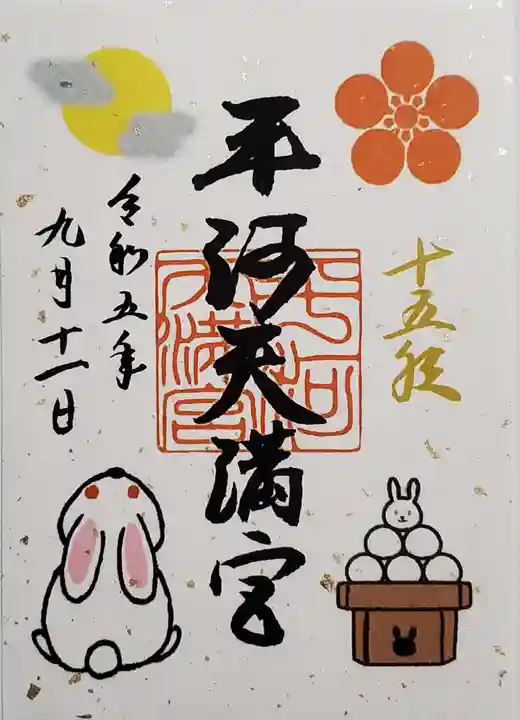 十五夜
平河天満宮
平河天満宮
令和五年
九月十一日